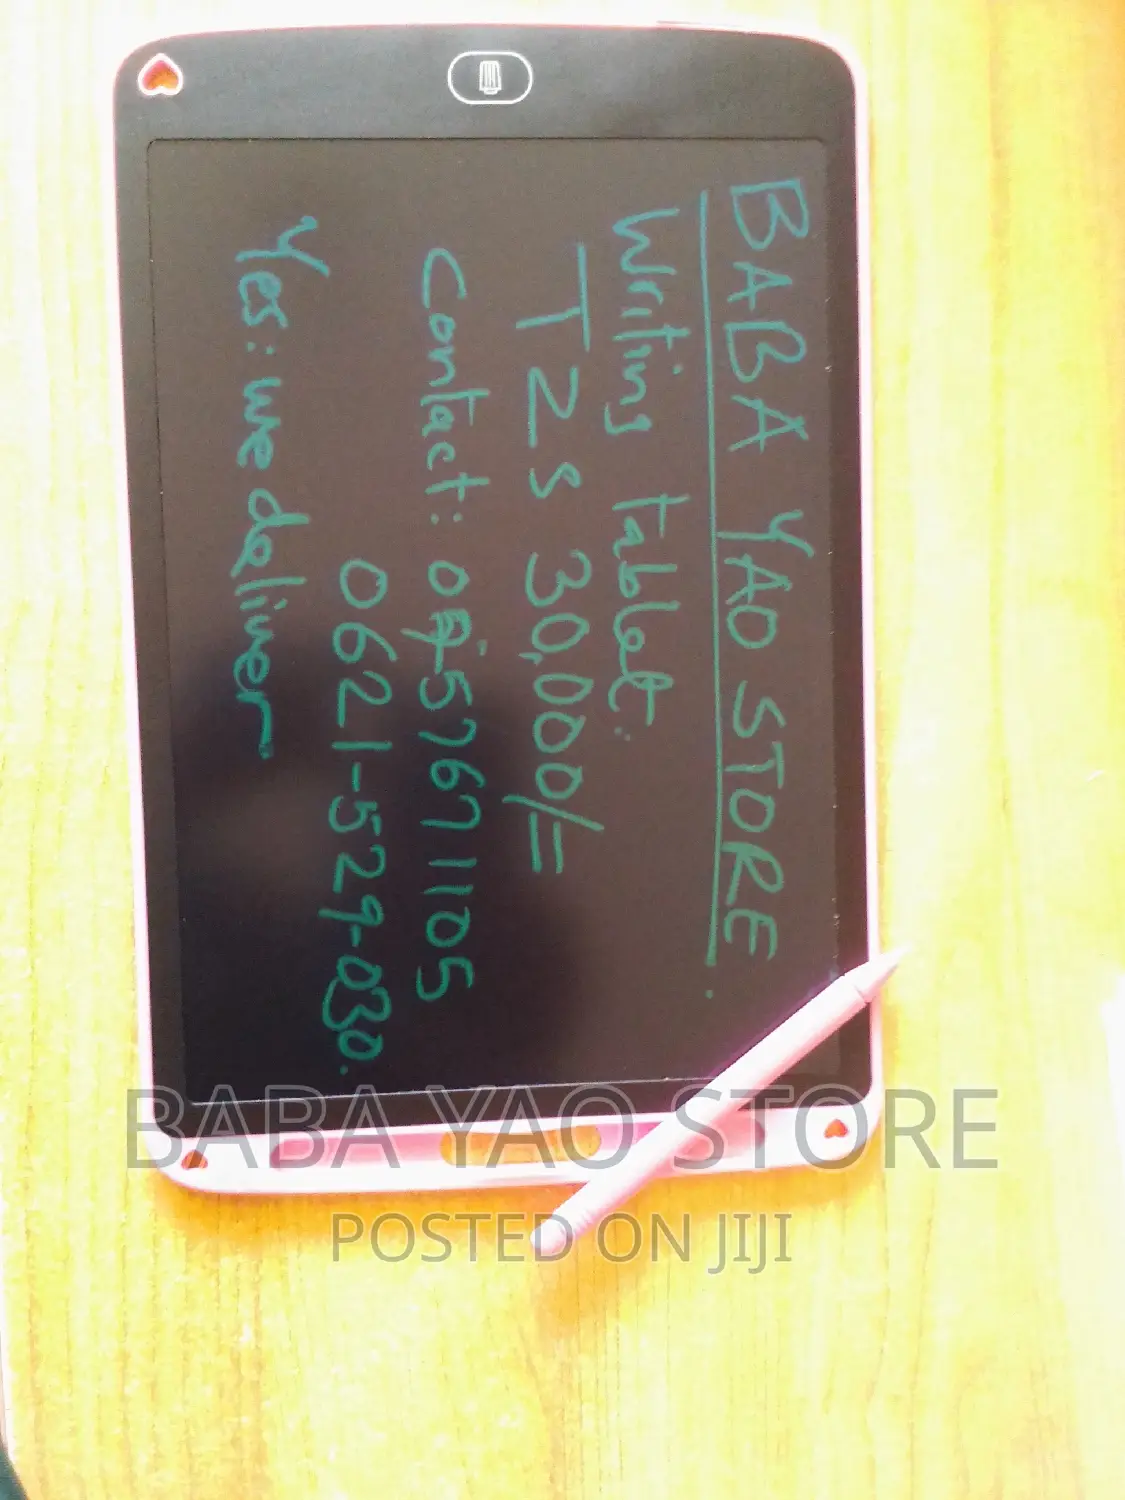 BABA YAO STORE.
Writing Tablet.
TZS 30,000/=
Contact:
0621-529-030.
Yes: we deliver
BABA YAO STORE
POSTED ON JIJI